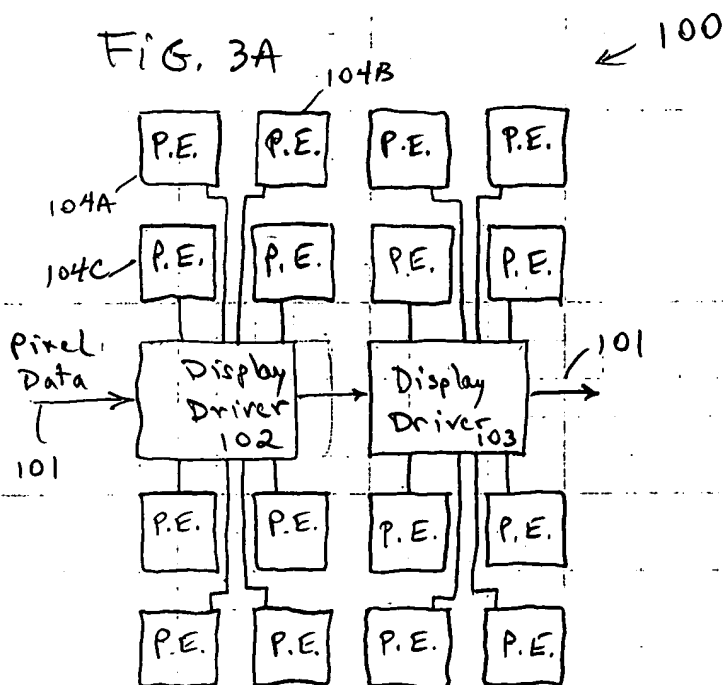 FiG. 3A
100
104B
P.E. P.E. P.E. P.E.
104A
104C P.E. P.E. P.E. P.E.
Pixel
Data
101
Display
Driver
102
Display
Driver
103
101
P.E. P.E. P.E. P.E.
P.E. P.E. P.E. P.E.